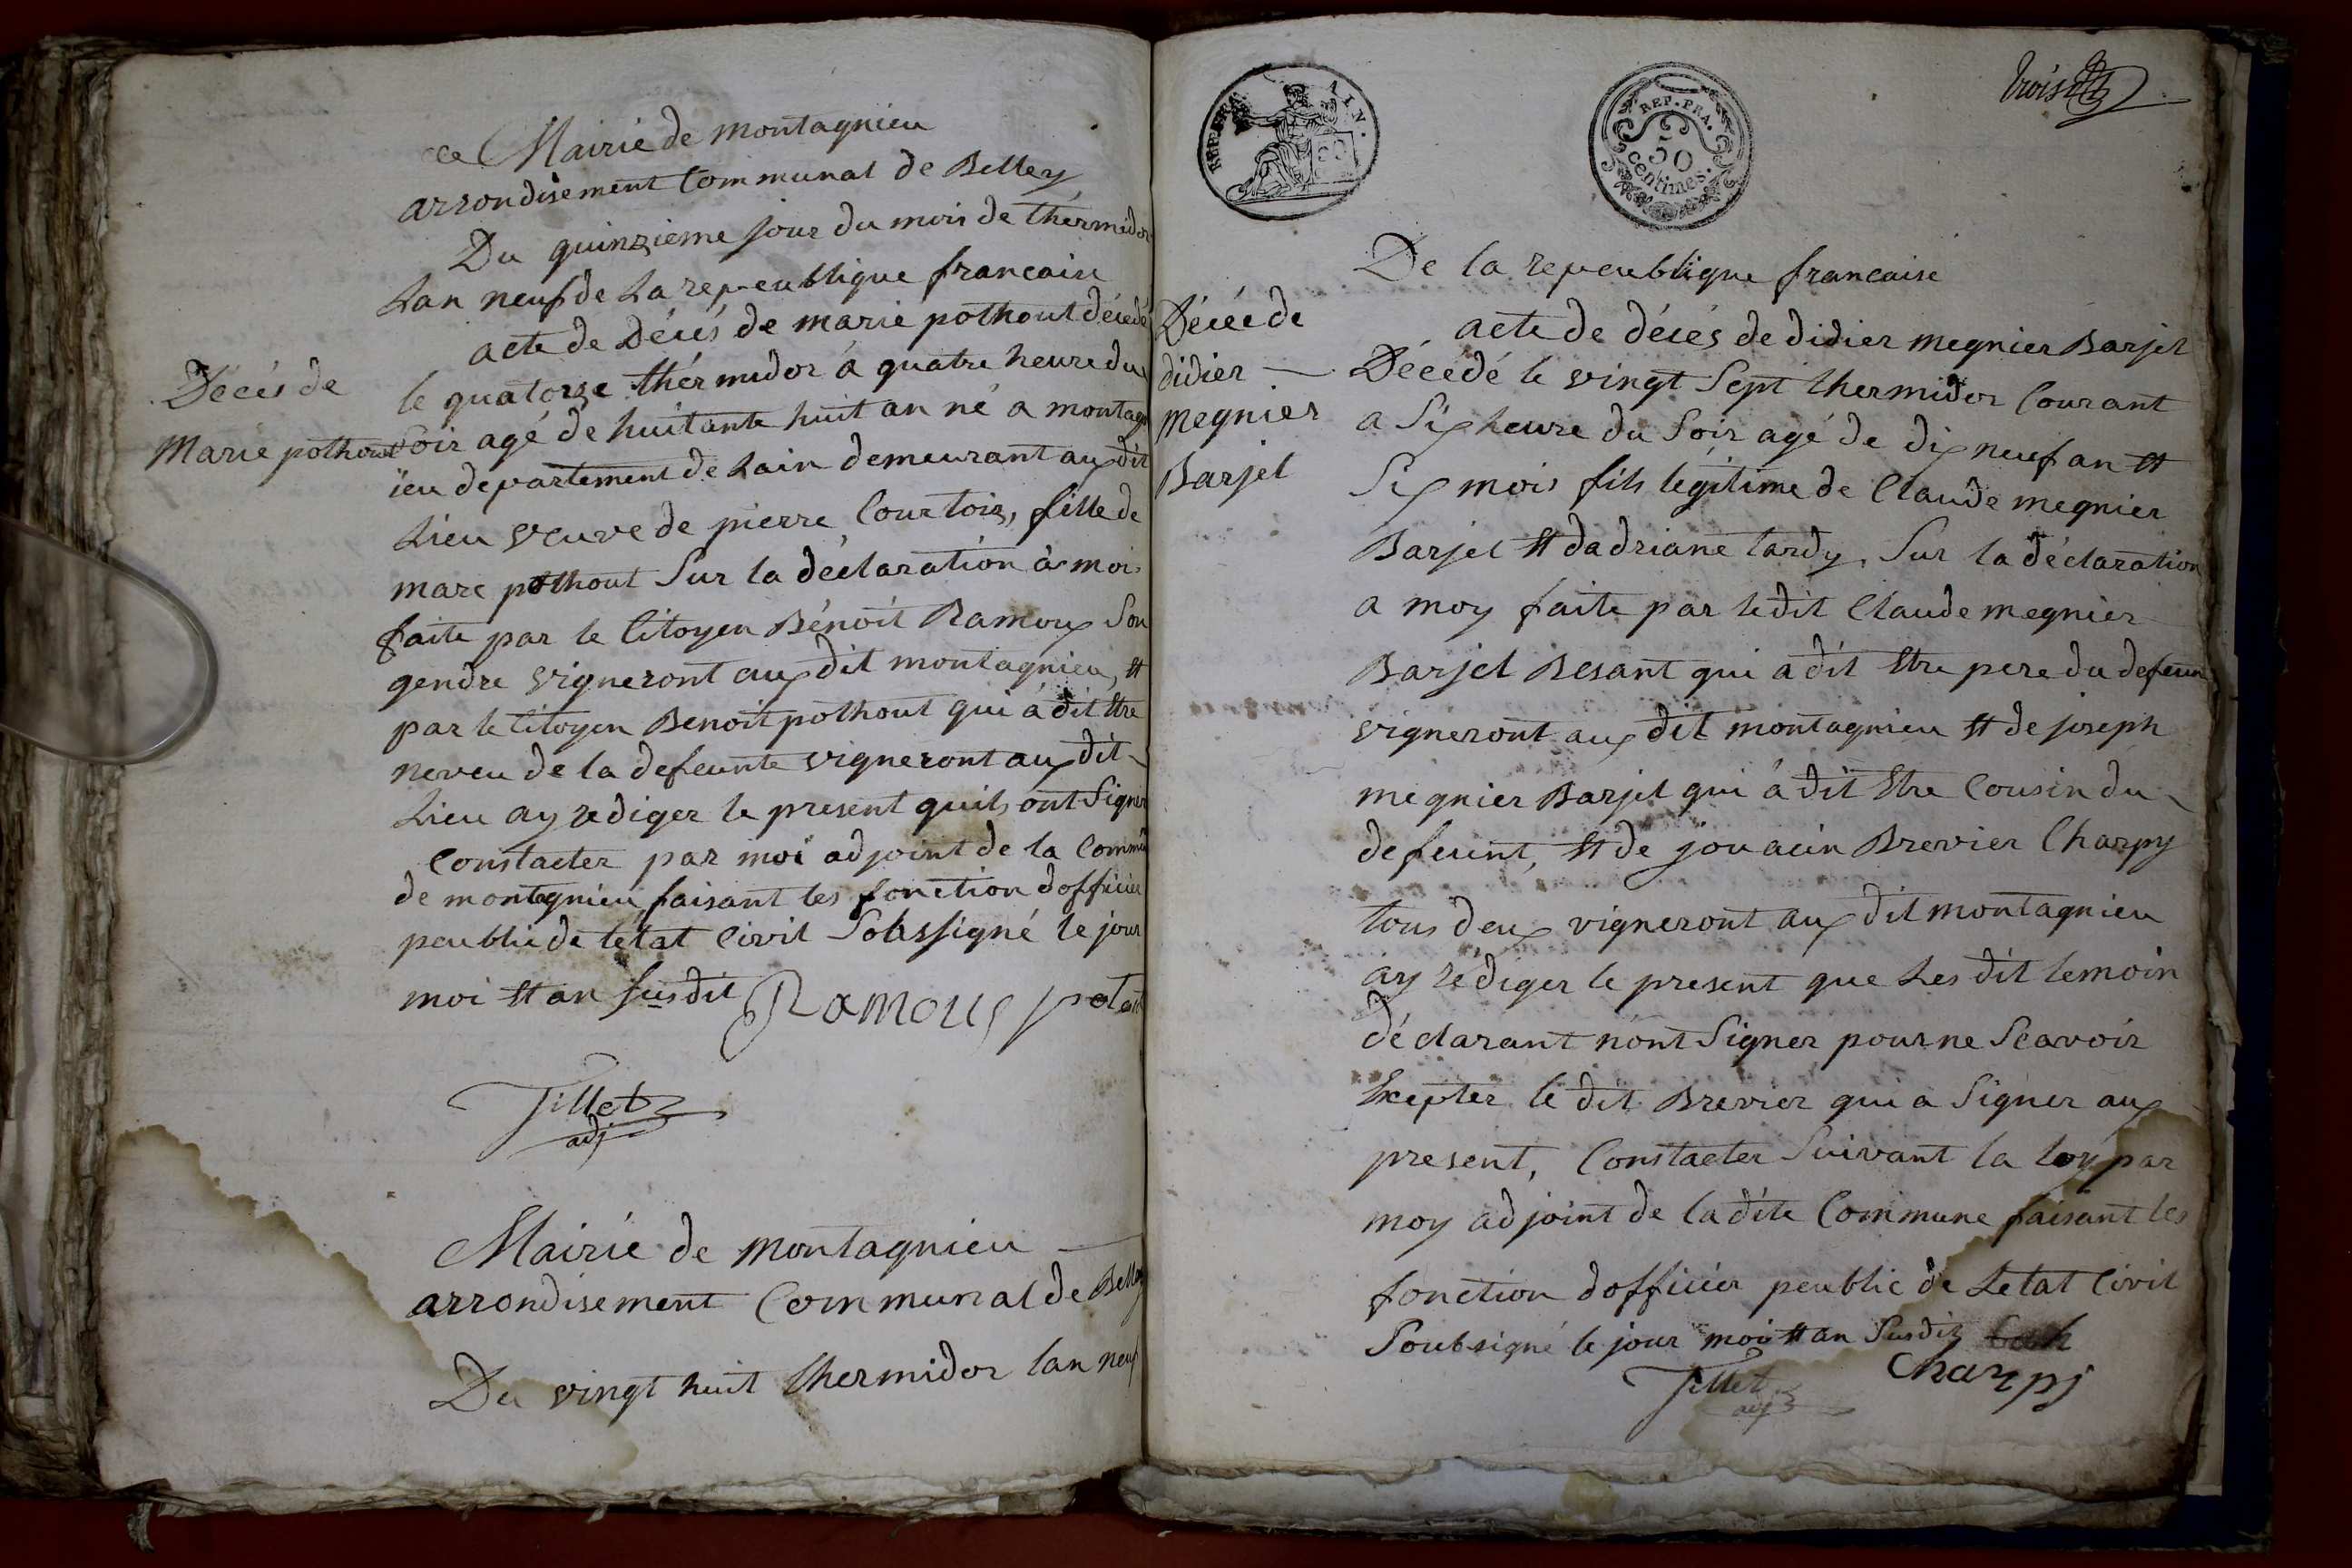 Mairie de montagnieu
arrondisement Communal de Belley
Du quinzieme jour du mois de thermidor
Lan neuf de La repeublique francaise
acte de Décés de marie pothout décedé
Décés de
Marie pothout
le quatorze thérmidor à quatre heure du
soir agé de huitante huit an né a montagn
ieu departement de Lain demeurant aux dit
Lieu veuve de pierre Courtois, fille de
marc pothout Sur la déclaration à moi
faite par le Citoyen Bénoit Ramoux Son
gendre vigneront aux dit montagnieu, et
par le Citoyen Benoit pothout qui à dit Etre
neveu de la defeunte vigneront aux dit
Lieu ay rediger le present quils ont Signer
Constater par moi adjoint de la Commu
de montagnieu faisant les fonction dofficier
peublic de létat Civil Sobssigné le jour
moi et an susdit Ramous potout
Tillet
adj
Mairie de montagnieu
arrondisement Communal de Belley
Du vingt huit thermidor lan neuf
REP. FRA. AIN.
50
REP. FRA.
50
centimes.
trois
De la repeublique francaise
Décée de
didier
megnier
Barjet
acte de décés de didier megnier Barjet
Décédé le vingt Sept thermidor Courant
a Six heure du Soir agé de dix neuf an et
Six mois fils legitime de Claude megnier
Barjet et dadriane tardy, Sur la déclaration
a moy faite par le dit Claude megnier
Barjet Besant qui a dit Etre pere du defeun
vigneront aux dit montagnieu et de joseph
megnier Barjet qui à dit Etre Cousin du
defeunt, et de jouacin Brevier Charpy
tous deux vigneront aux dit montagnieu
ay rédiger le present que Les dit temoin
déclarant n'ont Signer pour ne Scavoir
Excepter le dit Brevier qui a Signer aux
present, Constater Suivant la loy par
moy adjoint de la dite Commune faisant les
fonction dofficier peublic de Letat Civil
Soubsigné le jour mois et an Susdit
Charpj
Tillet
adj